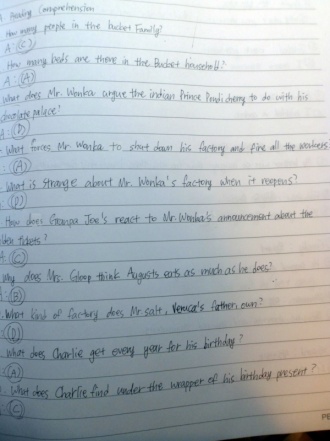 Reading Comprehension
How many people in the bucket Family?
A: (C)
How many beds are there in the Bucket household?
A: (A)
What does Mr. Wonka argue the indian Prince Pondicherry to do with his
chocolate palace?
A: (D)
What forces Mr. Wonka to shut down his factory and fire all the workers
: (A)
What is strange about Mr. Wonka's factory when it reopens?
: (D)
How does Grampa Joe's react to Mr. Wonka's announcement about the
tickets?
A. (C)
Why does Mrs. Gloop think Augusts eats as much as he does?
: (B)
What kind of factory does Mr salt, Veruca's father, own?
: (D)
What does Charlie get every year for his birthday?
: (A)
What does Charlie find under the wrapper of his birthday present?
: (C)
PE